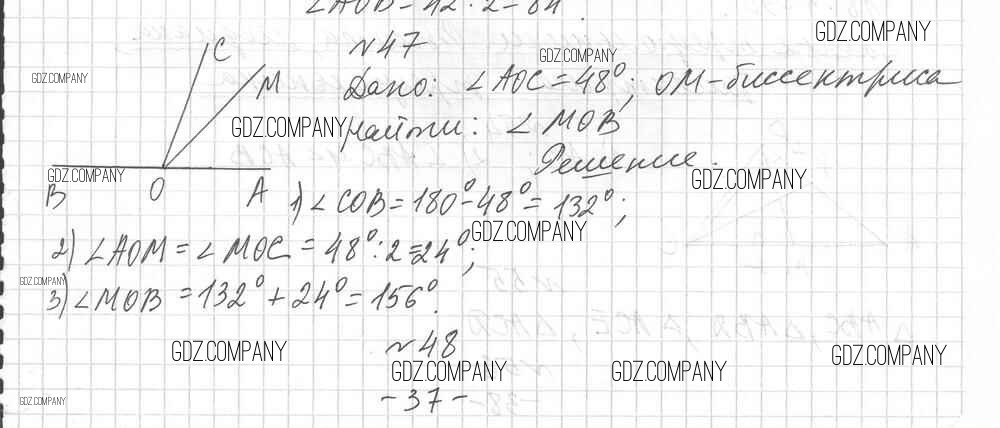 ∠AOB = 42 · 2 = 84
GDZ.COMPANY
№47
C
GDZ.COMPANY
GDZ.COMPANY
M
Дано: ∠AOC = 48°; OM - биссектриса
GDZ.COMPANY
Найти: ∠MOB
Решение.
GDZ.COMPANY
GDZ.COMPANY
B O A
1) ∠COB = 180° - 48° = 132°;
GDZ.COMPANY
2) ∠AOM = ∠MOC = 48° : 2 = 24°;
GDZ.COMPANY
3) ∠MOB = 132° + 24° = 156°.
№48
GDZ.COMPANY
GDZ.COMPANY
GDZ.COMPANY
GDZ.COMPANY
- 37 -
GDZ.COMPANY